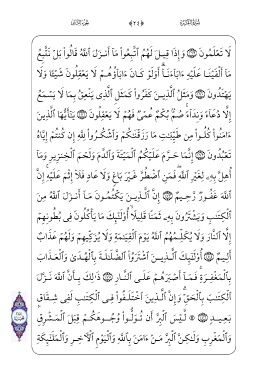 سُورَةُ الْبَقَرَةِ
لَا تَعْلَمُونَ وَإِذَا قِيلَ لَهُمُ ٱتَّبِعُوا۟ مَآ أَنزَلَ ٱللَّهُ قَالُوا۟ بَلْ نَتَّبِعُ
مَآ أَلْفَيْنَا عَلَيْهِ ءَابَآءَنَآ أَوَلَوْ كَانَ ءَابَآؤُهُمْ لَا يَعْقِلُونَ شَيْـًٔا وَلَا
يَهْتَدُونَ وَمَثَلُ ٱلَّذِينَ كَفَرُوا۟ كَمَثَلِ ٱلَّذِى يَنْعِقُ بِمَا لَا يَسْمَعُ
إِلَّا دُعَآءً وَنِدَآءً صُمٌّۢ بُكْمٌ عُمْىٌ فَهُمْ لَا يَعْقِلُونَ يَـٰٓأَيُّهَا ٱلَّذِينَ
ءَامَنُوا۟ كُلُوا۟ مِن طَيِّبَـٰتِ مَا رَزَقْنَـٰكُمْ وَٱشْكُرُوا۟ لِلَّهِ إِن كُنتُمْ إِيَّاهُ
تَعْبُدُونَ إِنَّمَا حَرَّمَ عَلَيْكُمُ ٱلْمَيْتَةَ وَٱلدَّمَ وَلَحْمَ ٱلْخِنزِيرِ وَمَآ
أُهِلَّ بِهِۦ لِغَيْرِ ٱللَّهِ فَمَنِ ٱضْطُرَّ غَيْرَ بَاغٍ وَلَا عَادٍ فَلَآ إِثْمَ عَلَيْهِ إِنَّ
ٱللَّهَ غَفُورٌ رَّحِيمٌ إِنَّ ٱلَّذِينَ يَكْتُمُونَ مَآ أَنزَلَ ٱللَّهُ مِنَ
ٱلْكِتَـٰبِ وَيَشْتَرُونَ بِهِۦ ثَمَنًا قَلِيلًا أُو۟لَـٰٓئِكَ مَا يَأْكُلُونَ فِى بُطُونِهِمْ
إِلَّا ٱلنَّارَ وَلَا يُكَلِّمُهُمُ ٱللَّهُ يَوْمَ ٱلْقِيَـٰمَةِ وَلَا يُزَكِّيهِمْ وَلَهُمْ عَذَابٌ
أَلِيمٌ أُو۟لَـٰٓئِكَ ٱلَّذِينَ ٱشْتَرَوُا۟ ٱلضَّلَـٰلَةَ بِٱلْهُدَىٰ وَٱلْعَذَابَ
بِٱلْمَغْفِرَةِ فَمَآ أَصْبَرَهُمْ عَلَى ٱلنَّارِ ذَٰلِكَ بِأَنَّ ٱللَّهَ نَزَّلَ
ٱلْكِتَـٰبَ بِٱلْحَقِّ وَإِنَّ ٱلَّذِينَ ٱخْتَلَفُوا۟ فِى ٱلْكِتَـٰبِ لَفِى شِقَاقٍۭ
بَعِيدٍ لَّيْسَ ٱلْبِرَّ أَن تُوَلُّوا۟ وُجُوهَكُمْ قِبَلَ ٱلْمَشْرِقِ
وَٱلْمَغْرِبِ وَلَـٰكِنَّ ٱلْبِرَّ مَنْ ءَامَنَ بِٱللَّهِ وَٱلْيَوْمِ ٱلْـَٔاخِرِ وَٱلْمَلَـٰٓئِكَةِ